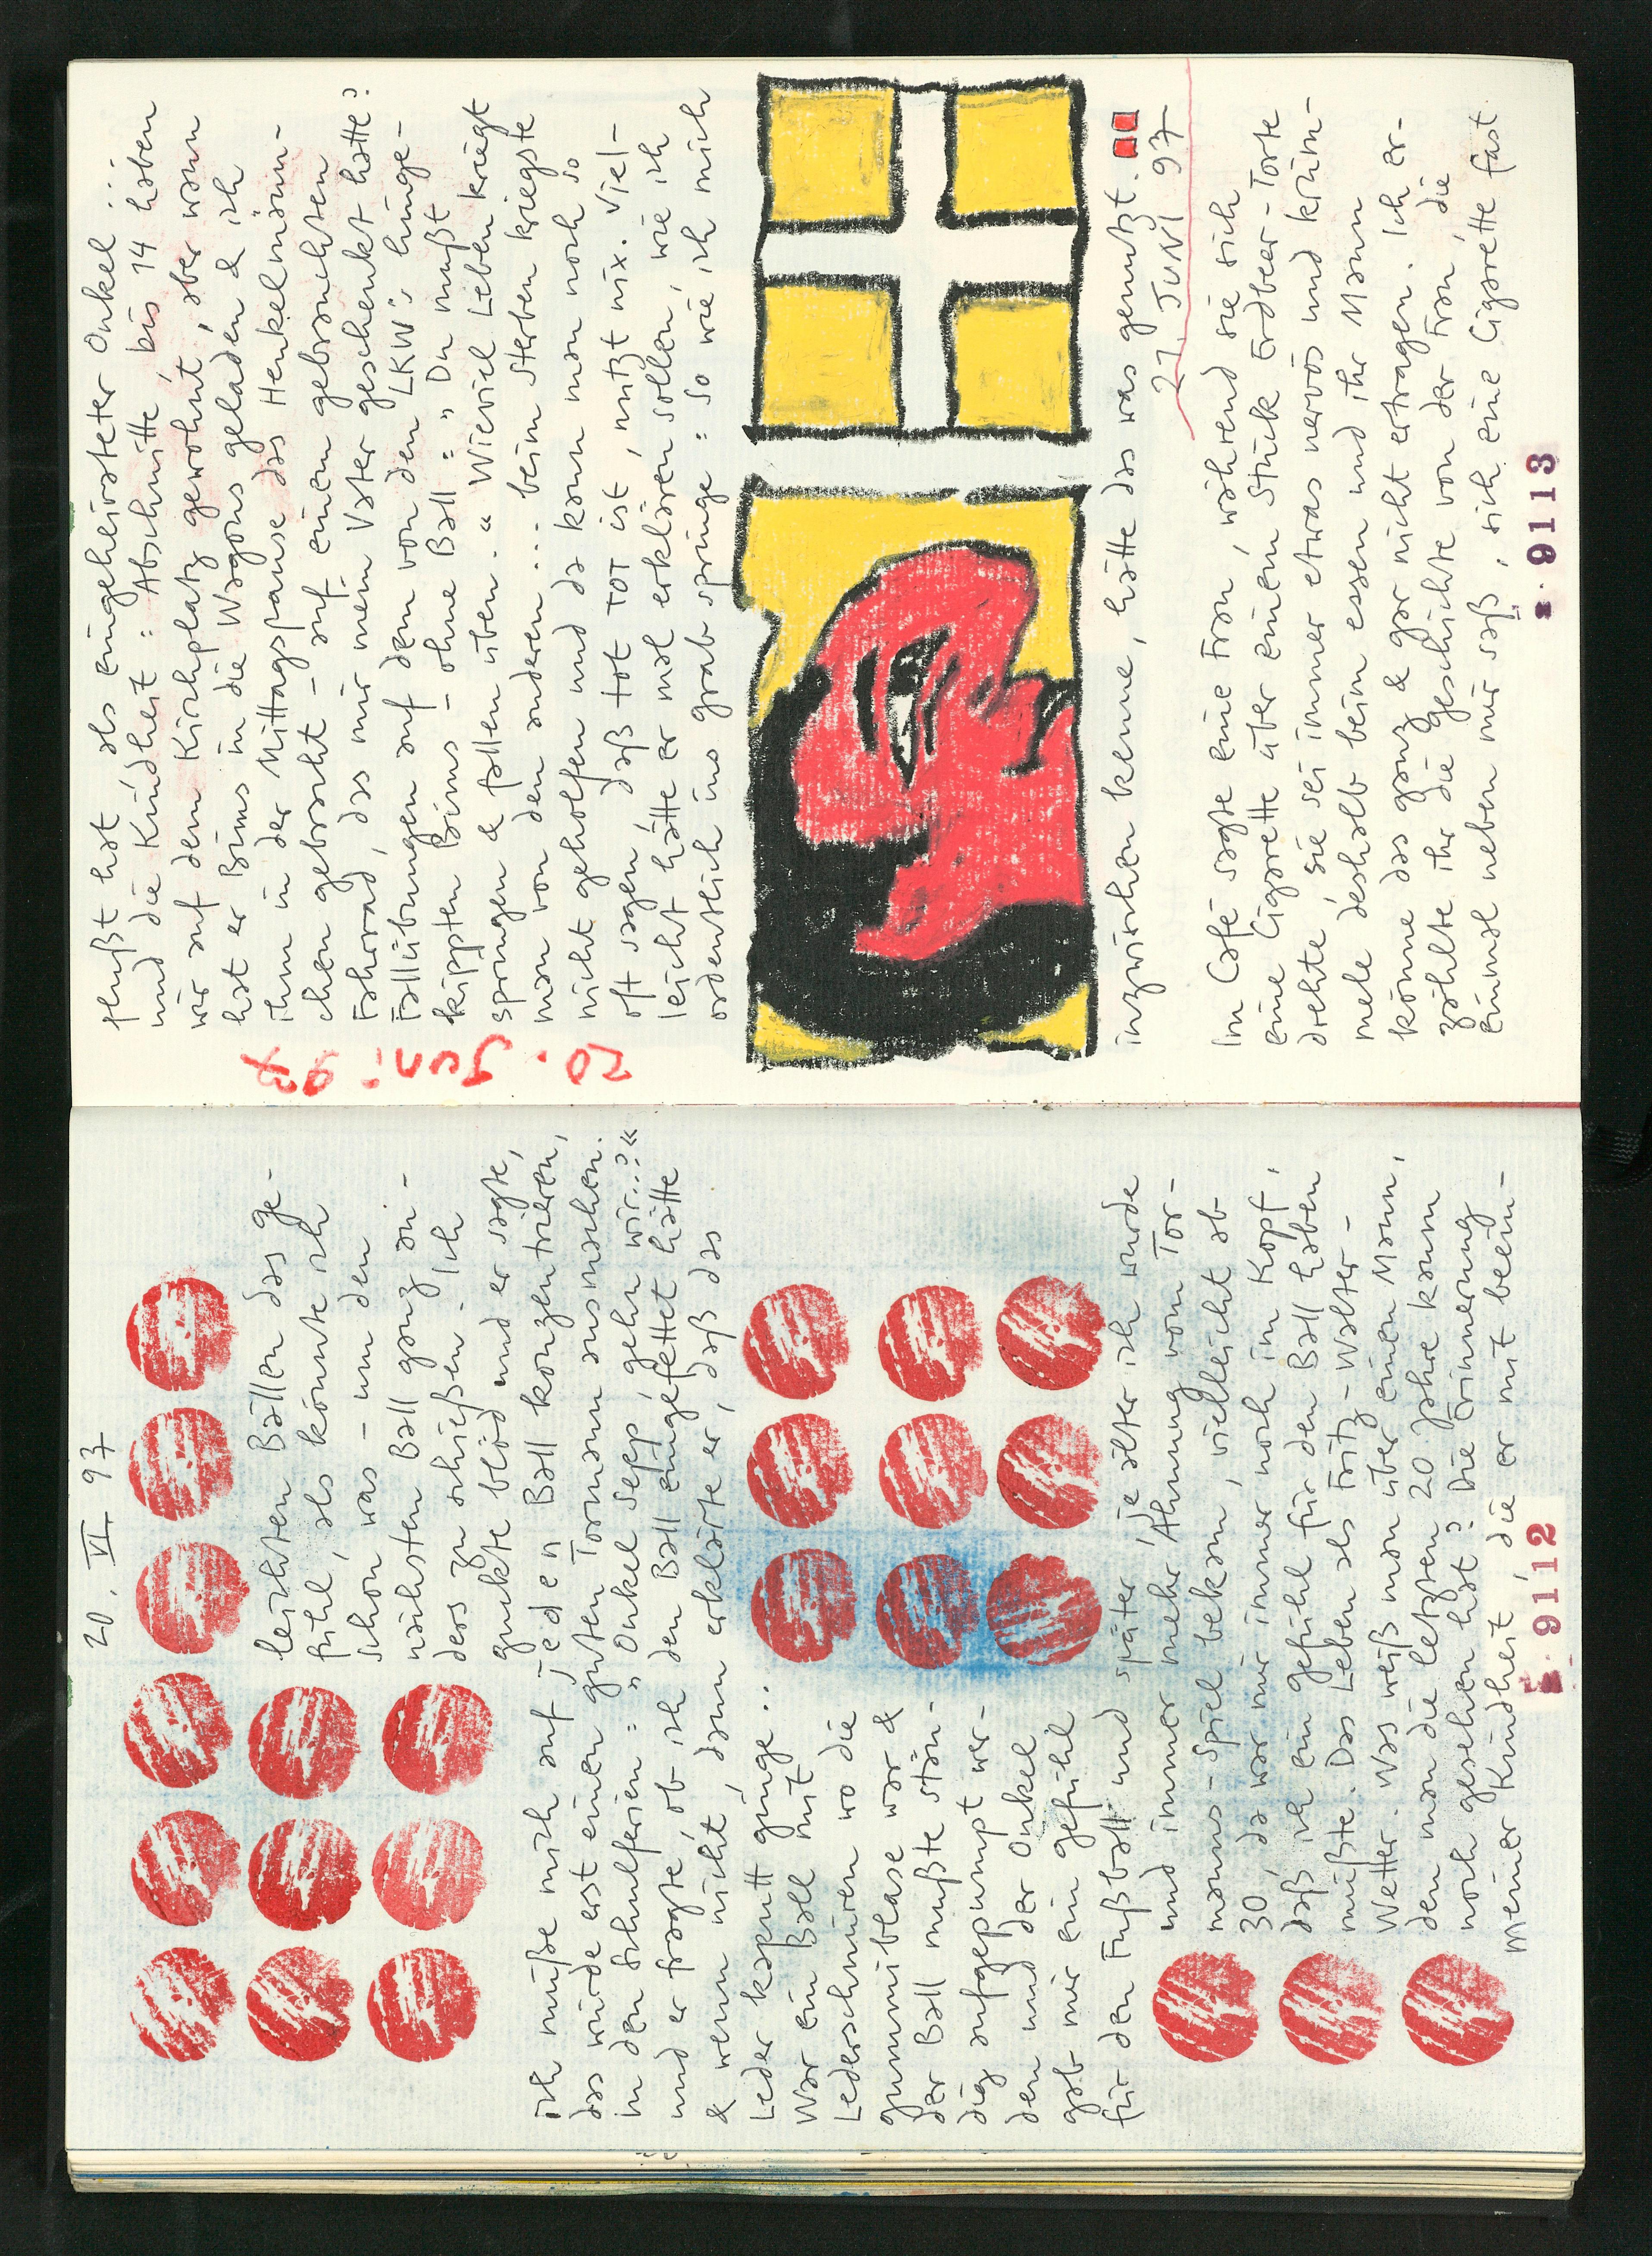 20. VI. 97
leichten Bällen das ge-
fühl, als könnte ich
schon was - um den
nächsten Ball ganz an-
ders zu schießen. Ich
guckte blöd und er sagte,
ich müße mich auf jeden Ball konzentrieren,
das würde erst einen guten Tormann ausmachen.
In den Schulferien: „Onkel Sepp, gehn wir...?“
und er fragte, ob ich den Ball eingefettet hätte
& wenn nicht, dann erklärte er, daß das
Leder kaputt ginge...
War ein Ball mit
Lederschnüren wo die
gummiblase war &
der Ball mußte stän-
dig aufgepumpt wer-
den und der Onkel
gab mir ein gefühl
für den Fußball und später, je älter ich wurde
und immer mehr Ahnung vom Tor-
manns-Spiel bekam, vielleicht ab
30, da war mir immer noch im Kopf,
daß ich ein gefühl für den Ball haben
müßte. Das Leben als Fritz-Walter-
Wetter. Was weiß man über einen Mann,
den man die letzten 20 Jahre kaum
noch gesehen hat? Die Erinnerung
meiner Kindheit, die er mit beein-
9112
flußt hat als eingeheirateter Onkel...
und die Kindheit: Abschnitte bis 14 haben
wir auf dem Kirchplatz gewohnt, aber wann
hat er Bims in die Wagons geladen & ich
ihm in der Mittagspause das Henkelmänn-
chen gebracht - auf einem gebrauchten
Fahrrad, das mir mein Vater geschenkt hatte?
Fallübungen auf dem von den LKW's hinge-
kippten Bims - ohne Ball: „Du mußt
springen & fallen üben.“ Wieviel Leben kriegt
man von den anderen... beim Sterben kriegste
nicht geholfen und da kann man noch so
oft sagen, daß tot TOT ist, nützt nix. Viel-
leicht hätte er mal erklären sollen, wie ich
ordentlich ins grab springe: so wie ich mich
20. Juni 97
inzwischen kenne, hätte das was genutzt.
21 JUNI 97
Im Café sagte eine Frau, während sie sich
eine Cigarette über einem Stück Erdbeer-Torte
drehte, sie sei immer etwas nervös und krüm-
mele deshalb beim essen und ihr Mann
könne das ganz & gar nicht ertragen. Ich er-
zählte ihr die geschichte von der Frau, die
einmal neben mir saß, sich eine Cigarette fast
9113